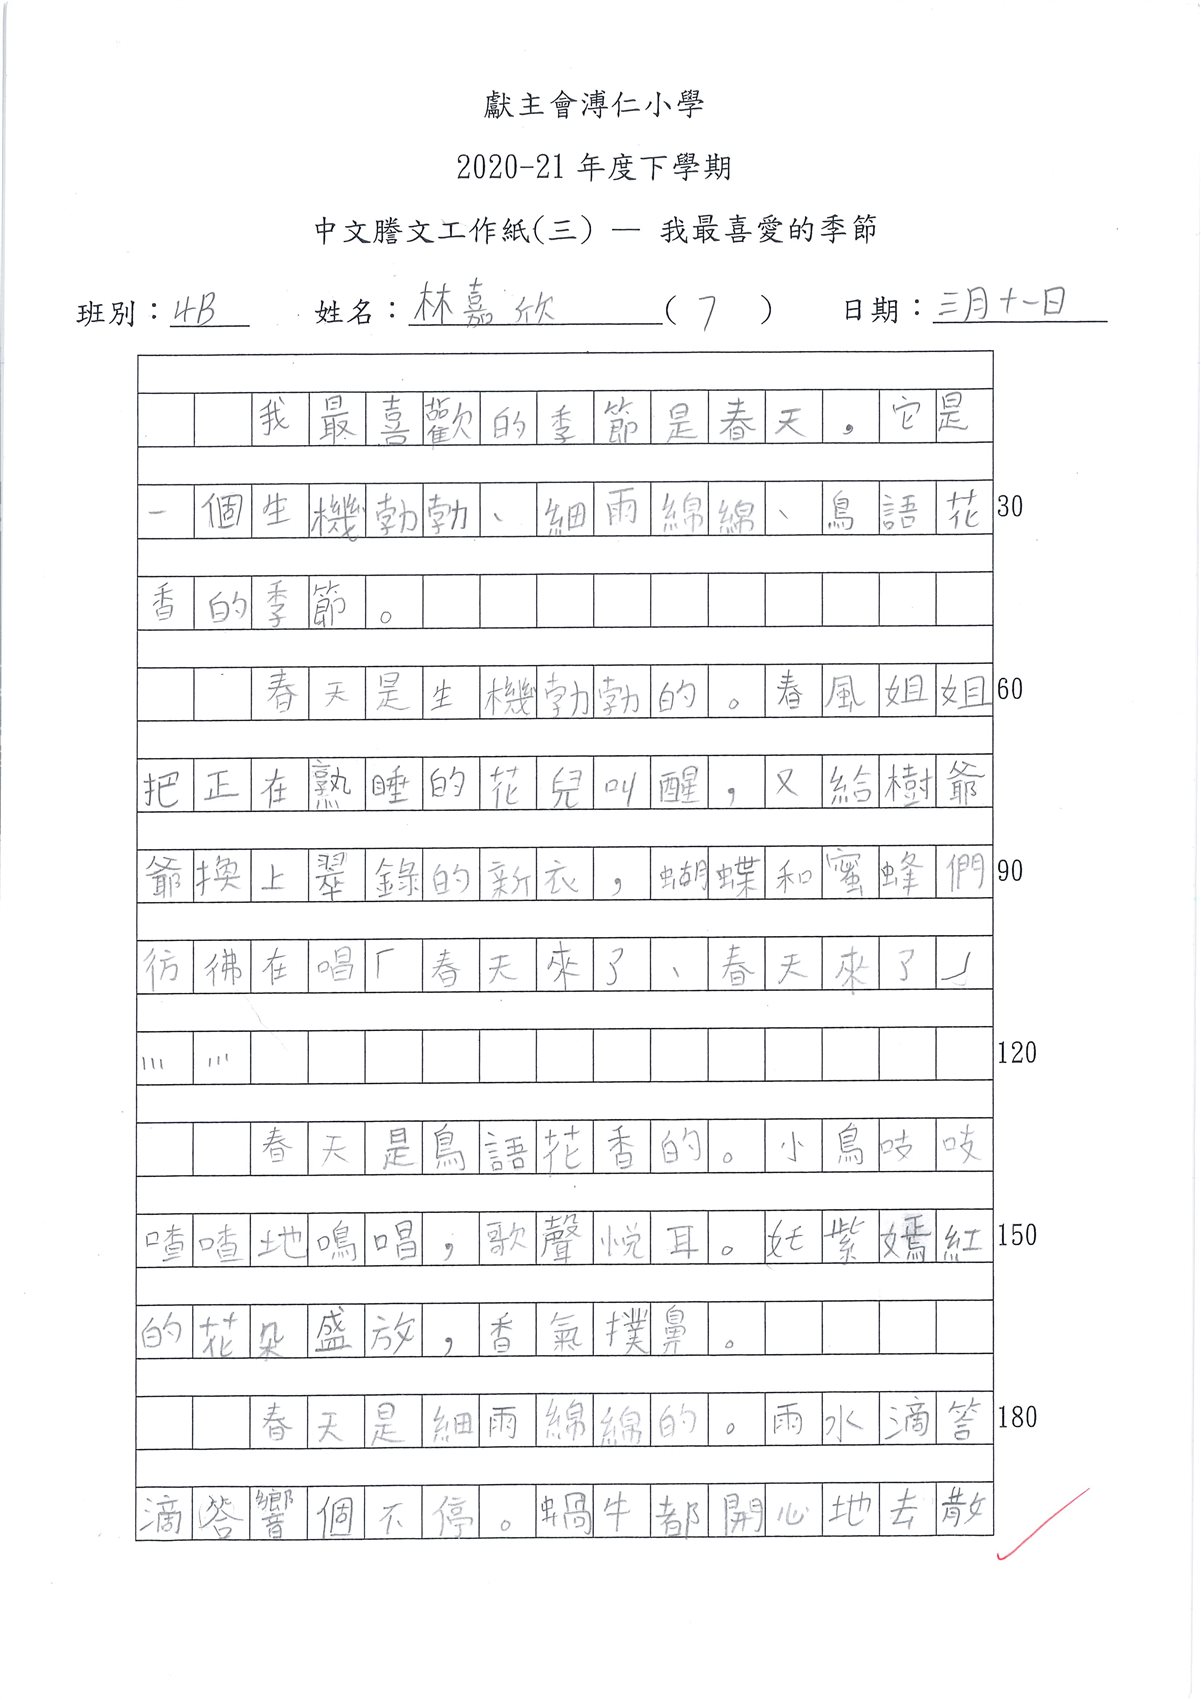 獻主會溥仁小學
2020-21 年度下學期
中文謄文工作紙(三) — 我最喜愛的季節
班別：4B 姓名：林嘉欣 (7) 日期：三月十一日
我最喜歡的季節是春天，它是
一個生機勃勃、細雨綿綿、鳥語花 30
香的季節。
春天是生機勃勃的。春風姐姐 60
把正在熟睡的花兒叫醒，又給樹爺
爺換上翠錄的新衣，蝴蝶和蜜蜂們 90
彷彿在唱「春天來了、春天來了」
…… 120
春天是鳥語花香的。小鳥吱吱
喳喳地鳴唱，歌聲悅耳。奼紫嫣紅 150
的花朵盛放，香氣撲鼻。
春天是細雨綿綿的。雨水滴答 180
滴答響個不停。蝸牛都開心地去散